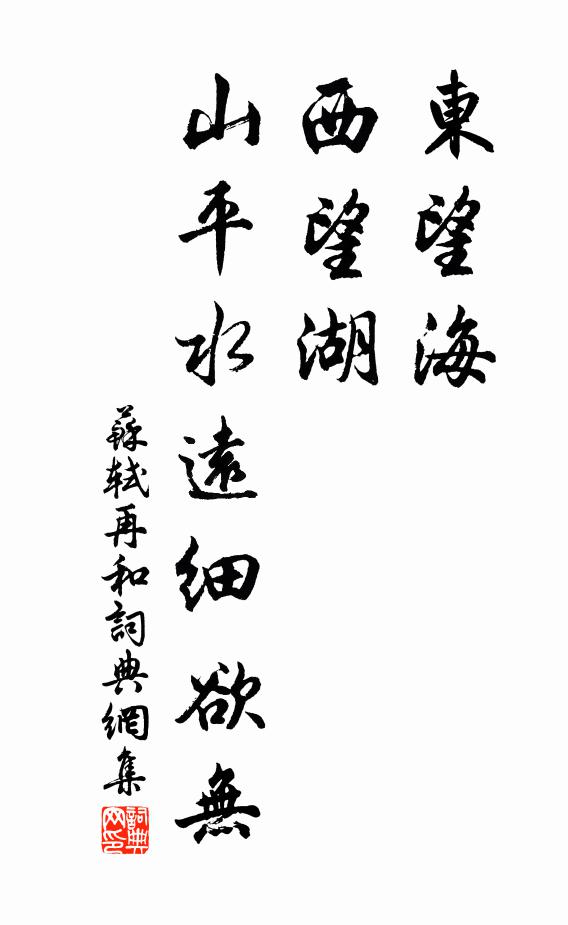 東望海
西望湖
山平水遠細欲無
蘇軾再和詞典網集
詞典
网印